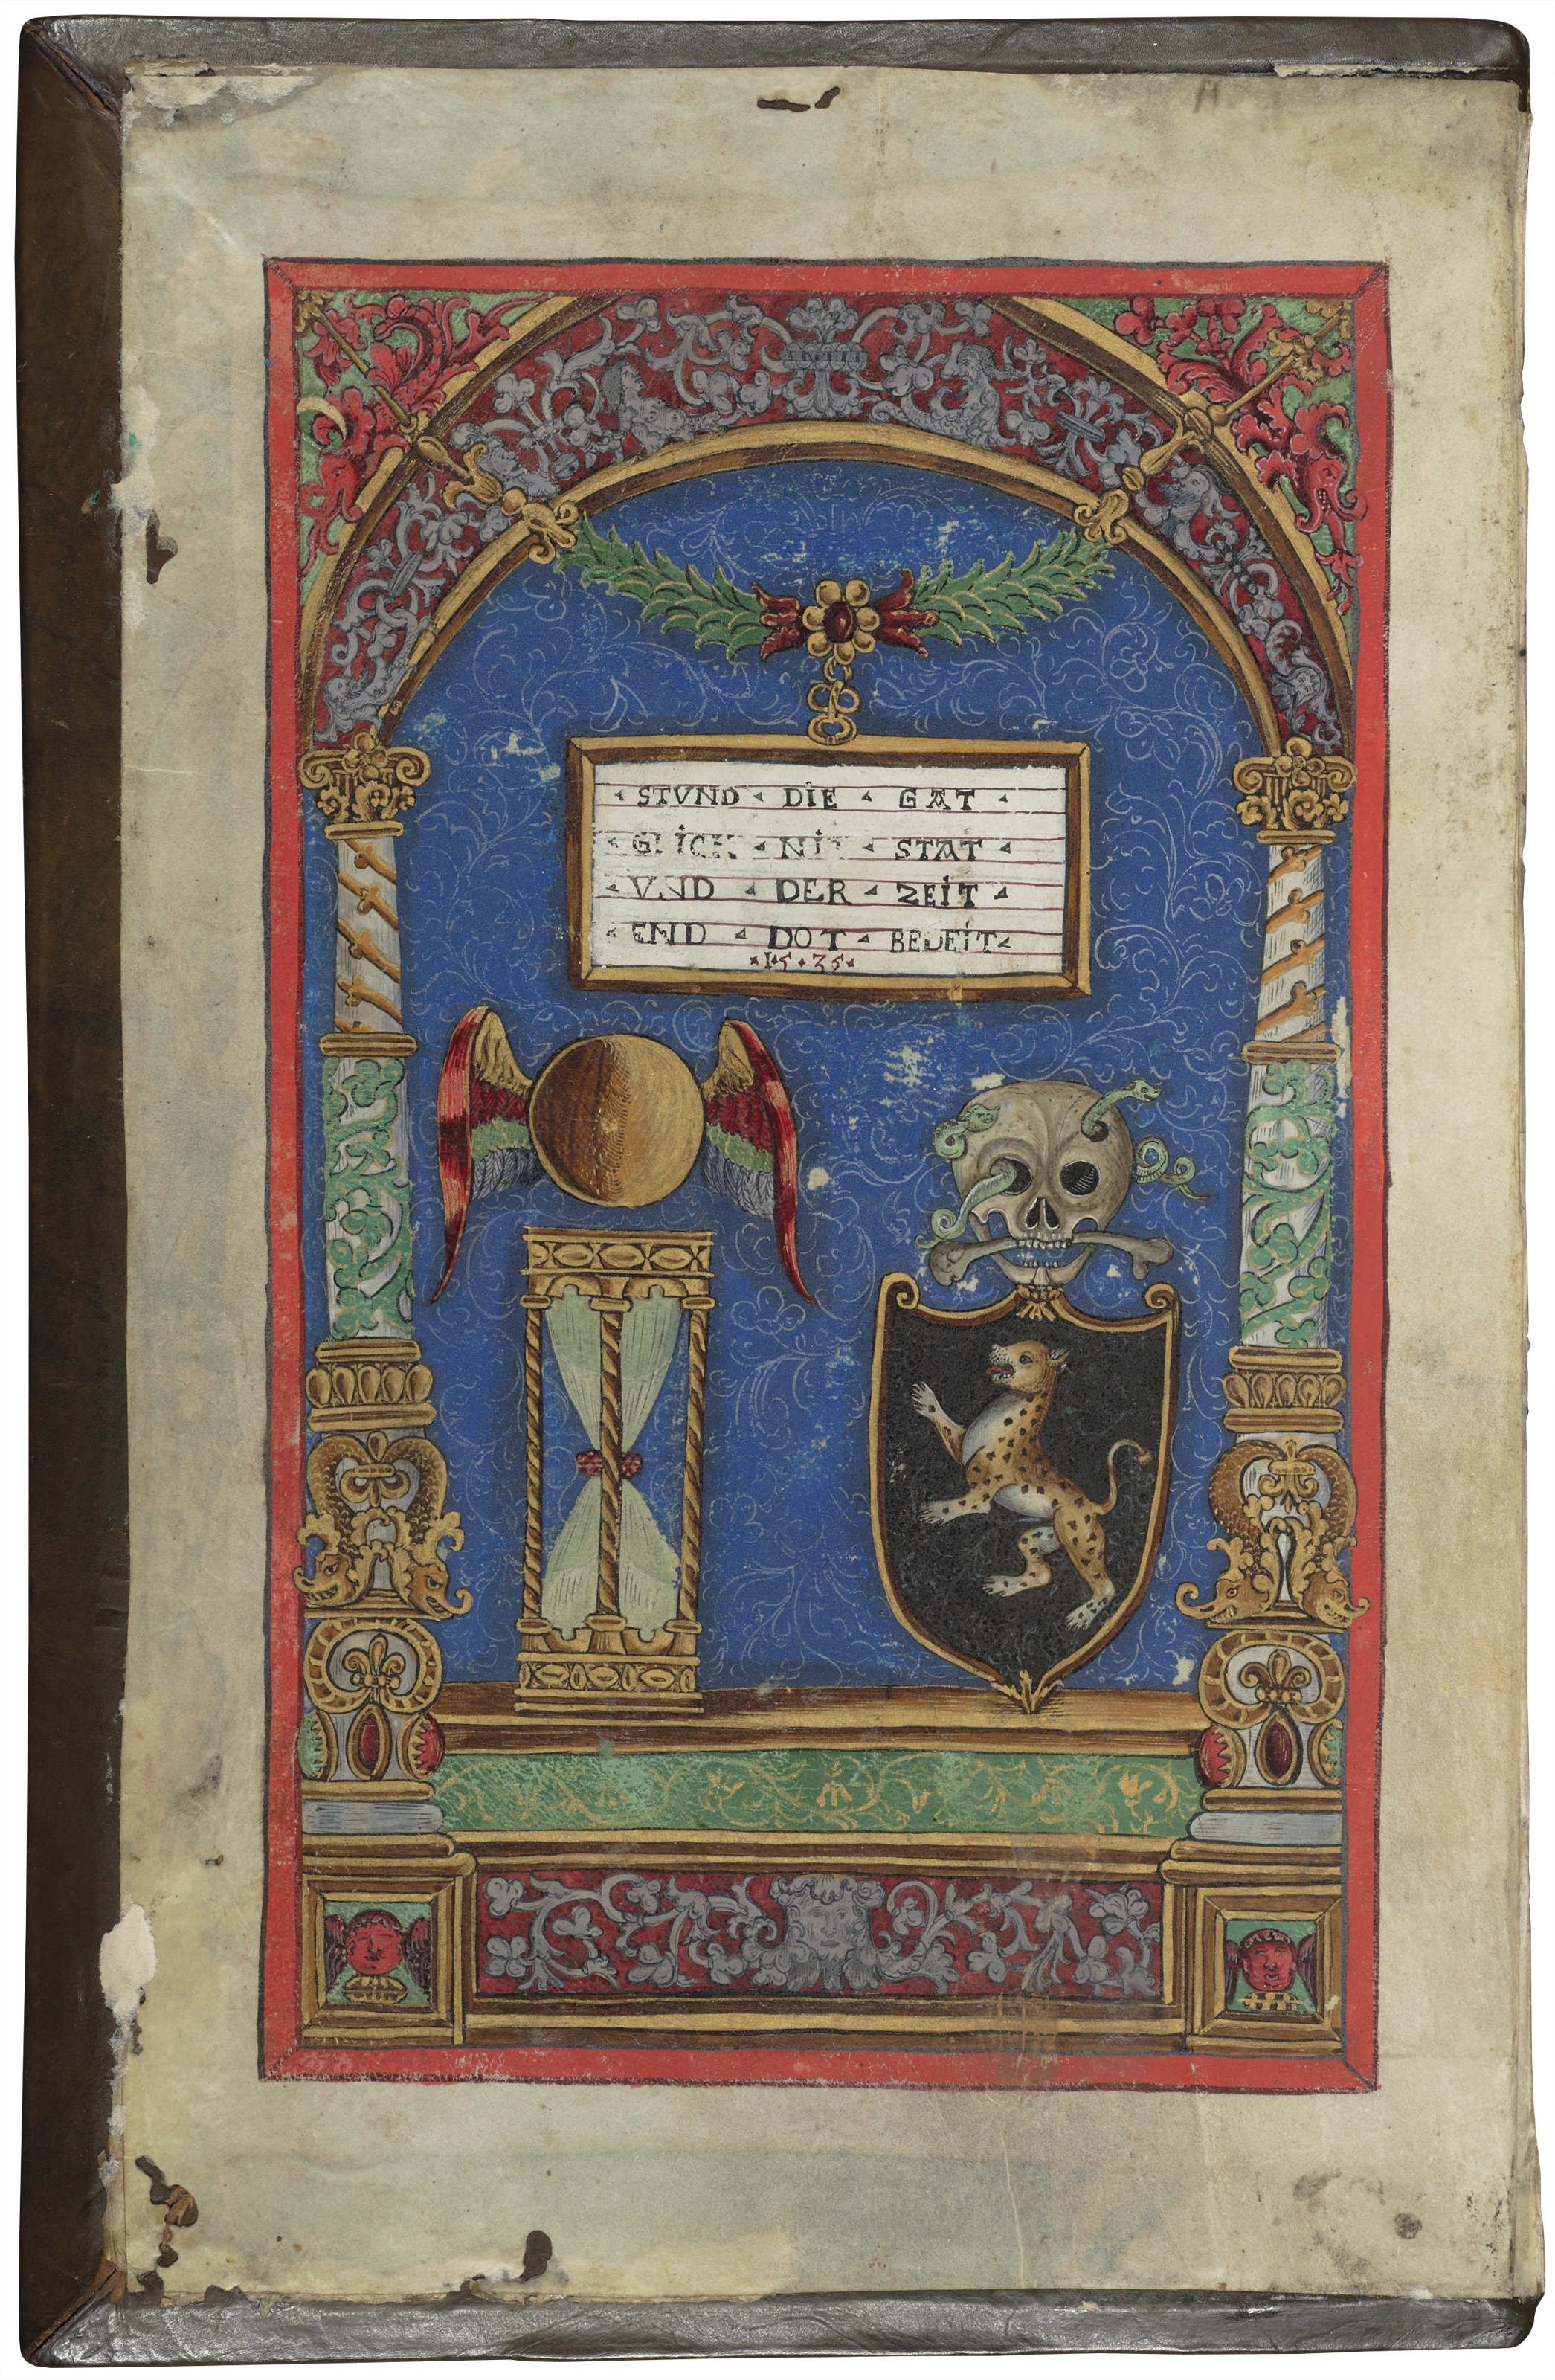 ◂ STVND ◂ DIE ◂ GAT ◂
◂ GLICK ◂ NIT ◂ STAT ◂
◂ VND ◂ DER ◂ ZEIT ◂
◂ END ◂ DOT ◂ BEDEIT ◂
• 15 • 35 •